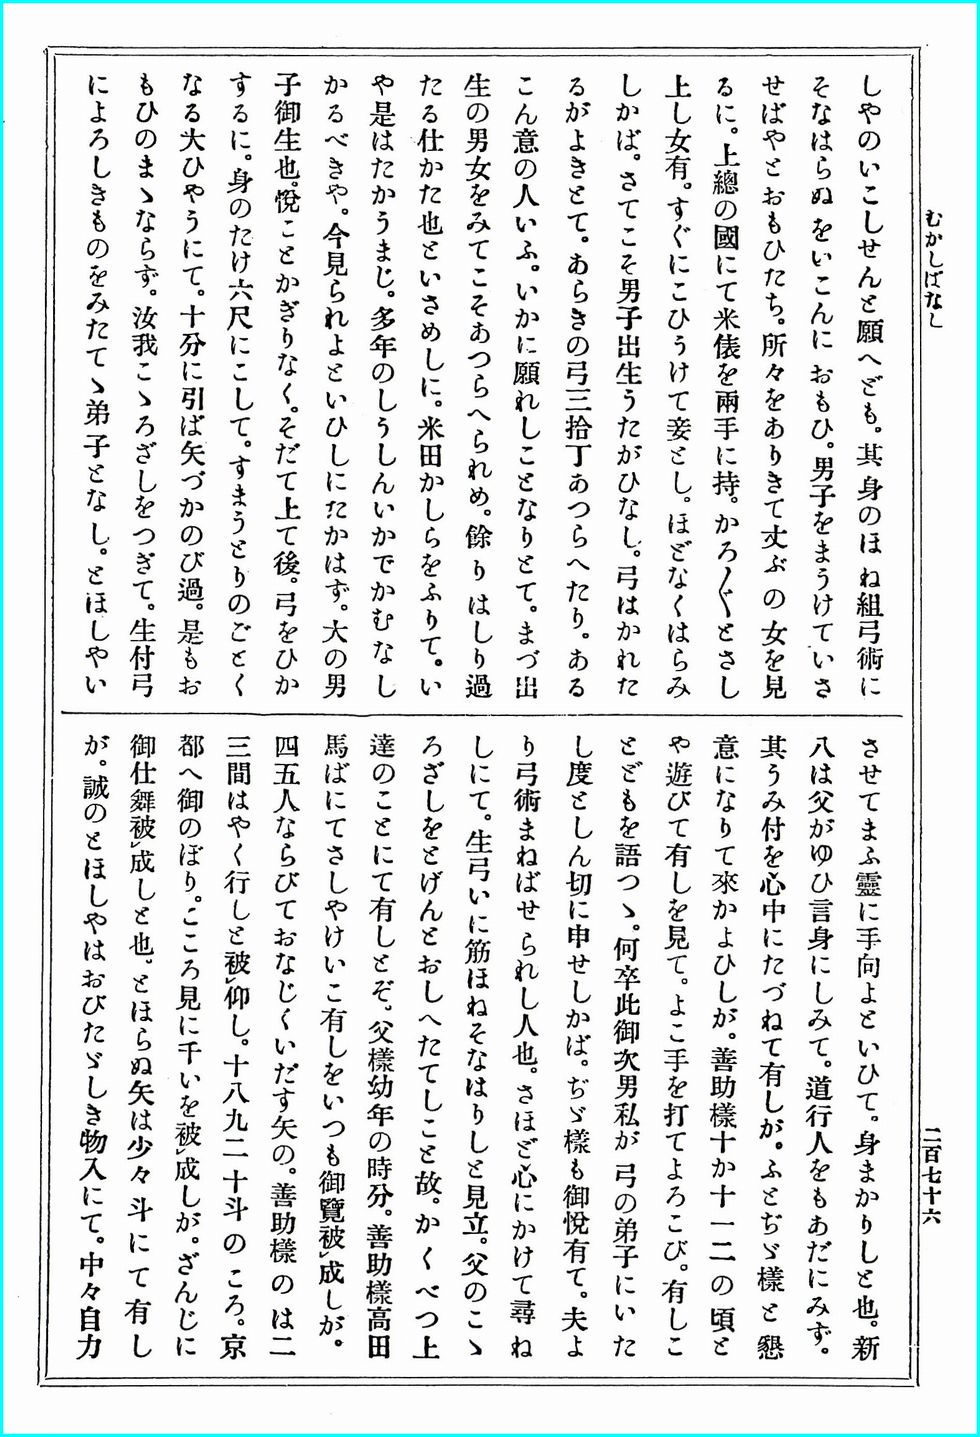 むかしばなし
二百七十六
しやのいこしせんと願へども。其身のほね組弓術に
そなはらぬをいこんにおもひ。男子をまうけていさ
せばやとおもひたち。所々をありきて丈ぶの女を見
るに。上總の國にて米俵を兩手に持。かろ〲とさし
上し女有。すぐにこひうけて妾とし。ほどなくはらみ
しかば。さてこそ男子出生うたがひなし。弓はかれた
るがよきとて。あらきの弓三拾丁あつらへたり。ある
こん意の人いふ。いかに願れしことなりとて。まづ出
生の男女をみてこそあつらへられめ。餘りはしり過
たる仕かた也といさめしに。米田かしらをふりて。い
や是はたかうまじ。多年のしうしんいかでかむなし
かるべきや。今見られよといひしにたかはず。大の男
子御生也。悅ことかぎりなく。そだて上て後。弓をひか
するに。身のたけ六尺にこして。すまうとりのごとく
なる大ひやうにて。十分に引ば矢づかのび過。是もお
もひのまゝならず。汝我こゝろざしをつぎて。生付弓
によろしきものをみたてゝ弟子となし。とほしやい
させてまふ靈に手向よといひて。身まかりしと也。新
八は父がゆひ言身にしみて。道行人をもあだにみず。
其うみ付を心中にたづねて有しが。ふとぢゞ樣と懇
意になりて來かよひしが。善助樣十か十一二の頃と
や遊びて有しを見て。よこ手を打てよろこび。有しこ
とどもを語つゝ。何卒此御次男私が弓の弟子にいた
し度としん切に申せしかば。ぢゞ樣も御悅有て。夫よ
り弓術まねばせられし人也。さほど心にかけて尋ね
しにて。生弓いに筋ほねそなはりしと見立。父のこゝ
ろざしをとげんとおしへたてしこと故。かくべつ上
達のことにて有しとぞ。父樣幼年の時分。善助樣高田
馬ばにてさしやけいこ有しをいつも御覽被㆑成しが。
四五人ならびておなじくいだす矢の。善助樣のは二
三間はやく行しと被㆑仰し。十八九二十斗のころ。京
都へ御のぼり。こころ見に千いを被㆑成しが。ざんじに
御仕舞被㆑成しと也。とほらぬ矢は少々斗にて有し
が。誠のとほしやはおびたゞしき物入にて。中々自力